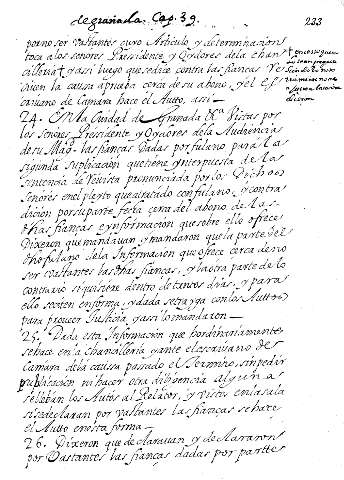 de granada. Cap. 39. 233
por no ser vastantes cuyo Articulo, y determinacion
toca a los señores Presidente, y Oydores de la chan
cilleria y assi luego que se dice contra las fianças
en la causa aprueba cerca de su abono, y el es
cribano de Camara hace el Auto, assi —
24. En la Ciudad de Granada &ª Vistas por
los señores Presidente y Oydores de la Audiencia
de su Magd. las fianças dadas por fulano para la
segunda suplicacion que tiene ynterpuesta de la
sentencia de Revista pronunciada por los Dichos
señores en el pleyto que a tratado con fulano, y contra
dicion por su parte fecha cerca del abono de las di
chas fianças, e ynformacion que sobre ello ofrece
Dixeron que mandavan, y mandaron que la parte del
dicho fulano de la Informacion que ofrece cerca de no
ser vastantes las dhas fianças, y la otra parte de lo
contrario si quisiere dentro de tantos dias, y para
ello se citen en forma, y dada se trayga con los Autos
para proveer Justicia y assi lo mandaron —
25. Dada esta Informacion que hordinariamente
se hace en la Chancilleria, y ante el escrivano de
Camara de la causa passado el termino, sin pedir
publicacion, ni hacer otra diligencia alguna
se lleban los Autos al Relator, y vistos en la sala
si se declaran por vastantes las fianças se hace
el Auto en esta forma —
26. Dixeron que declaravan, y declararon
por Vastantes las fianças dadas por partte